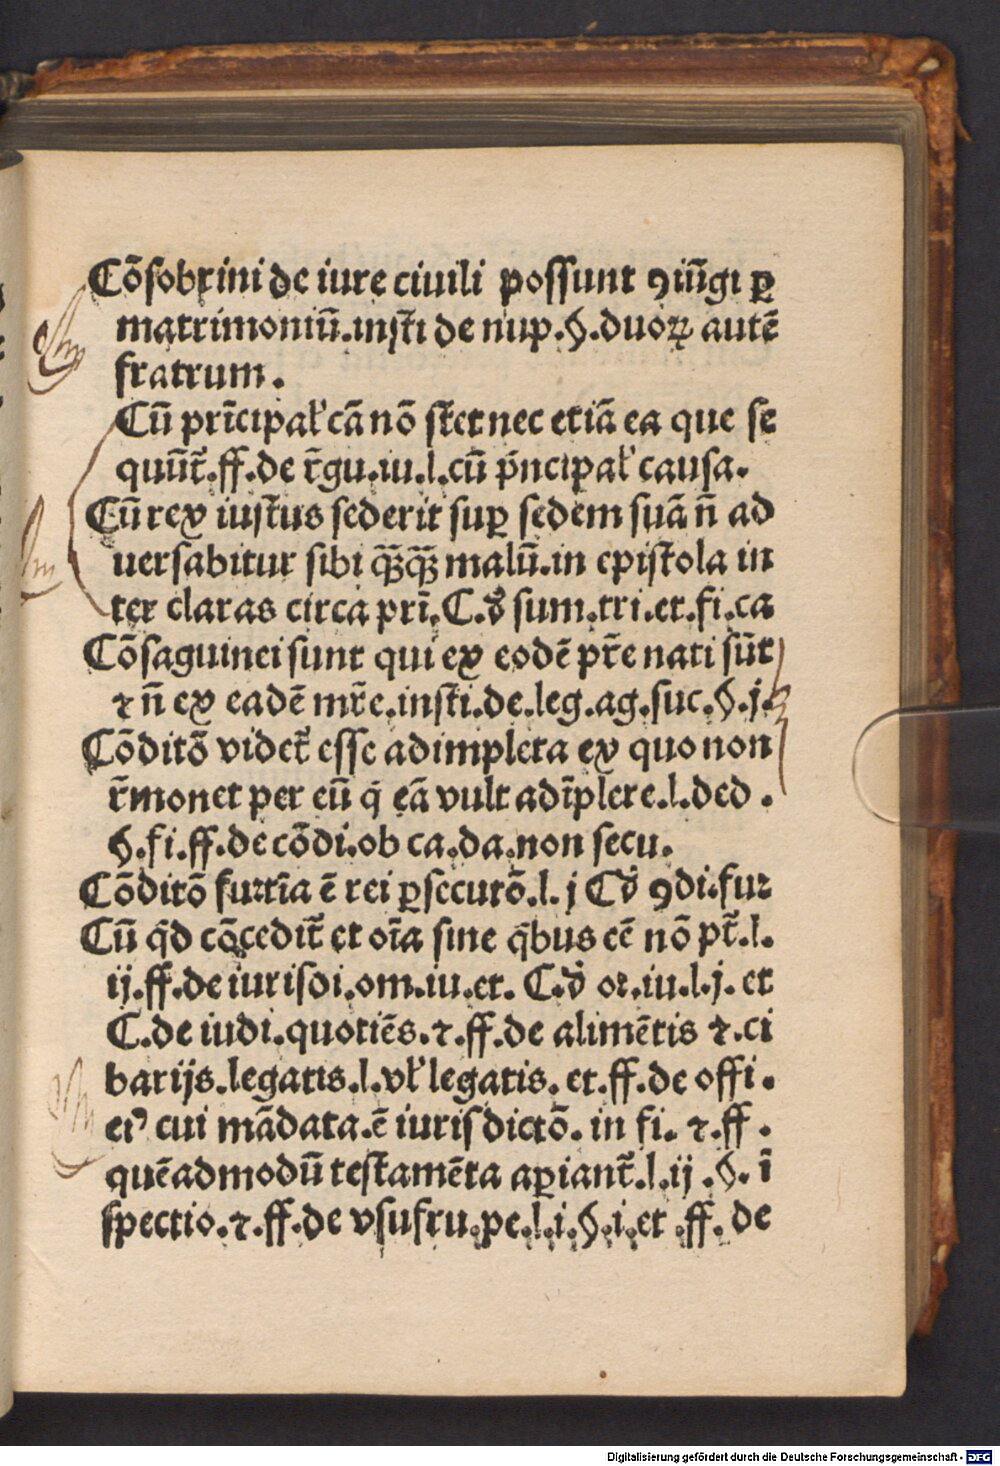 Cõsobrini de iure ciuili possunt ꝯiũgi ꝑ
matrimoniũ.insti de nup.§.duoꝝ autẽ
fratrum.
Cũ prĩcipal' cã nõ stet nec etiã ea que se
quũt̃.ff.de r̃gu.iu.l.cũ p̃ncipal' causa.
Cũ rex iustus sederit suꝑ sedem suã ñ ad
uersabitur sibi q̃ꝫq̃ꝫ malũ.in epistola in
ter claras circa prĩ.C.ď sum.tri.et.fi.ca
Cõsaguinei sunt qui ex eodẽ pr̃e nati sũt
⁊ ñ ex eadẽ mr̃e.insti.de.leg.ag.suc.§.j.
Cõditõ videt̃ esse adimpleta ex quo non
r̃monet per eũ q̇ eã vult adĩplere.l.ded.
§.fi.ff.de cõdi.ob ca.da.non secu.
Cõditõ furtĩa ẽ rei ꝑsecutõ.l.j C ď ꝯdi.fur
Cũ q̇d cõcedit̃ et oĩa sine q̇bus eẽ nõ pt̃.l.
ij.ff.de iurisdi.om.iu.et. C.ď or.iu.l.j. et
C.de iudi.quotiẽs.⁊.ff.de alimẽtis ⁊.ci
barijs.legatis.l.vl' legatis. et.ff.de offi.
eiꝰ cui mãdata.ẽ iurisdictõ. in fi. ⁊.ff.
quẽadmodũ testamẽta aꝑiant̃.l.ij.§. ĩ
spectio.⁊.ff.de vsufru.pe.l.i.§.i.et .ff. de
Digitalisierung gefördert durch die Deutsche Forschungsgemeinschaft - DFG